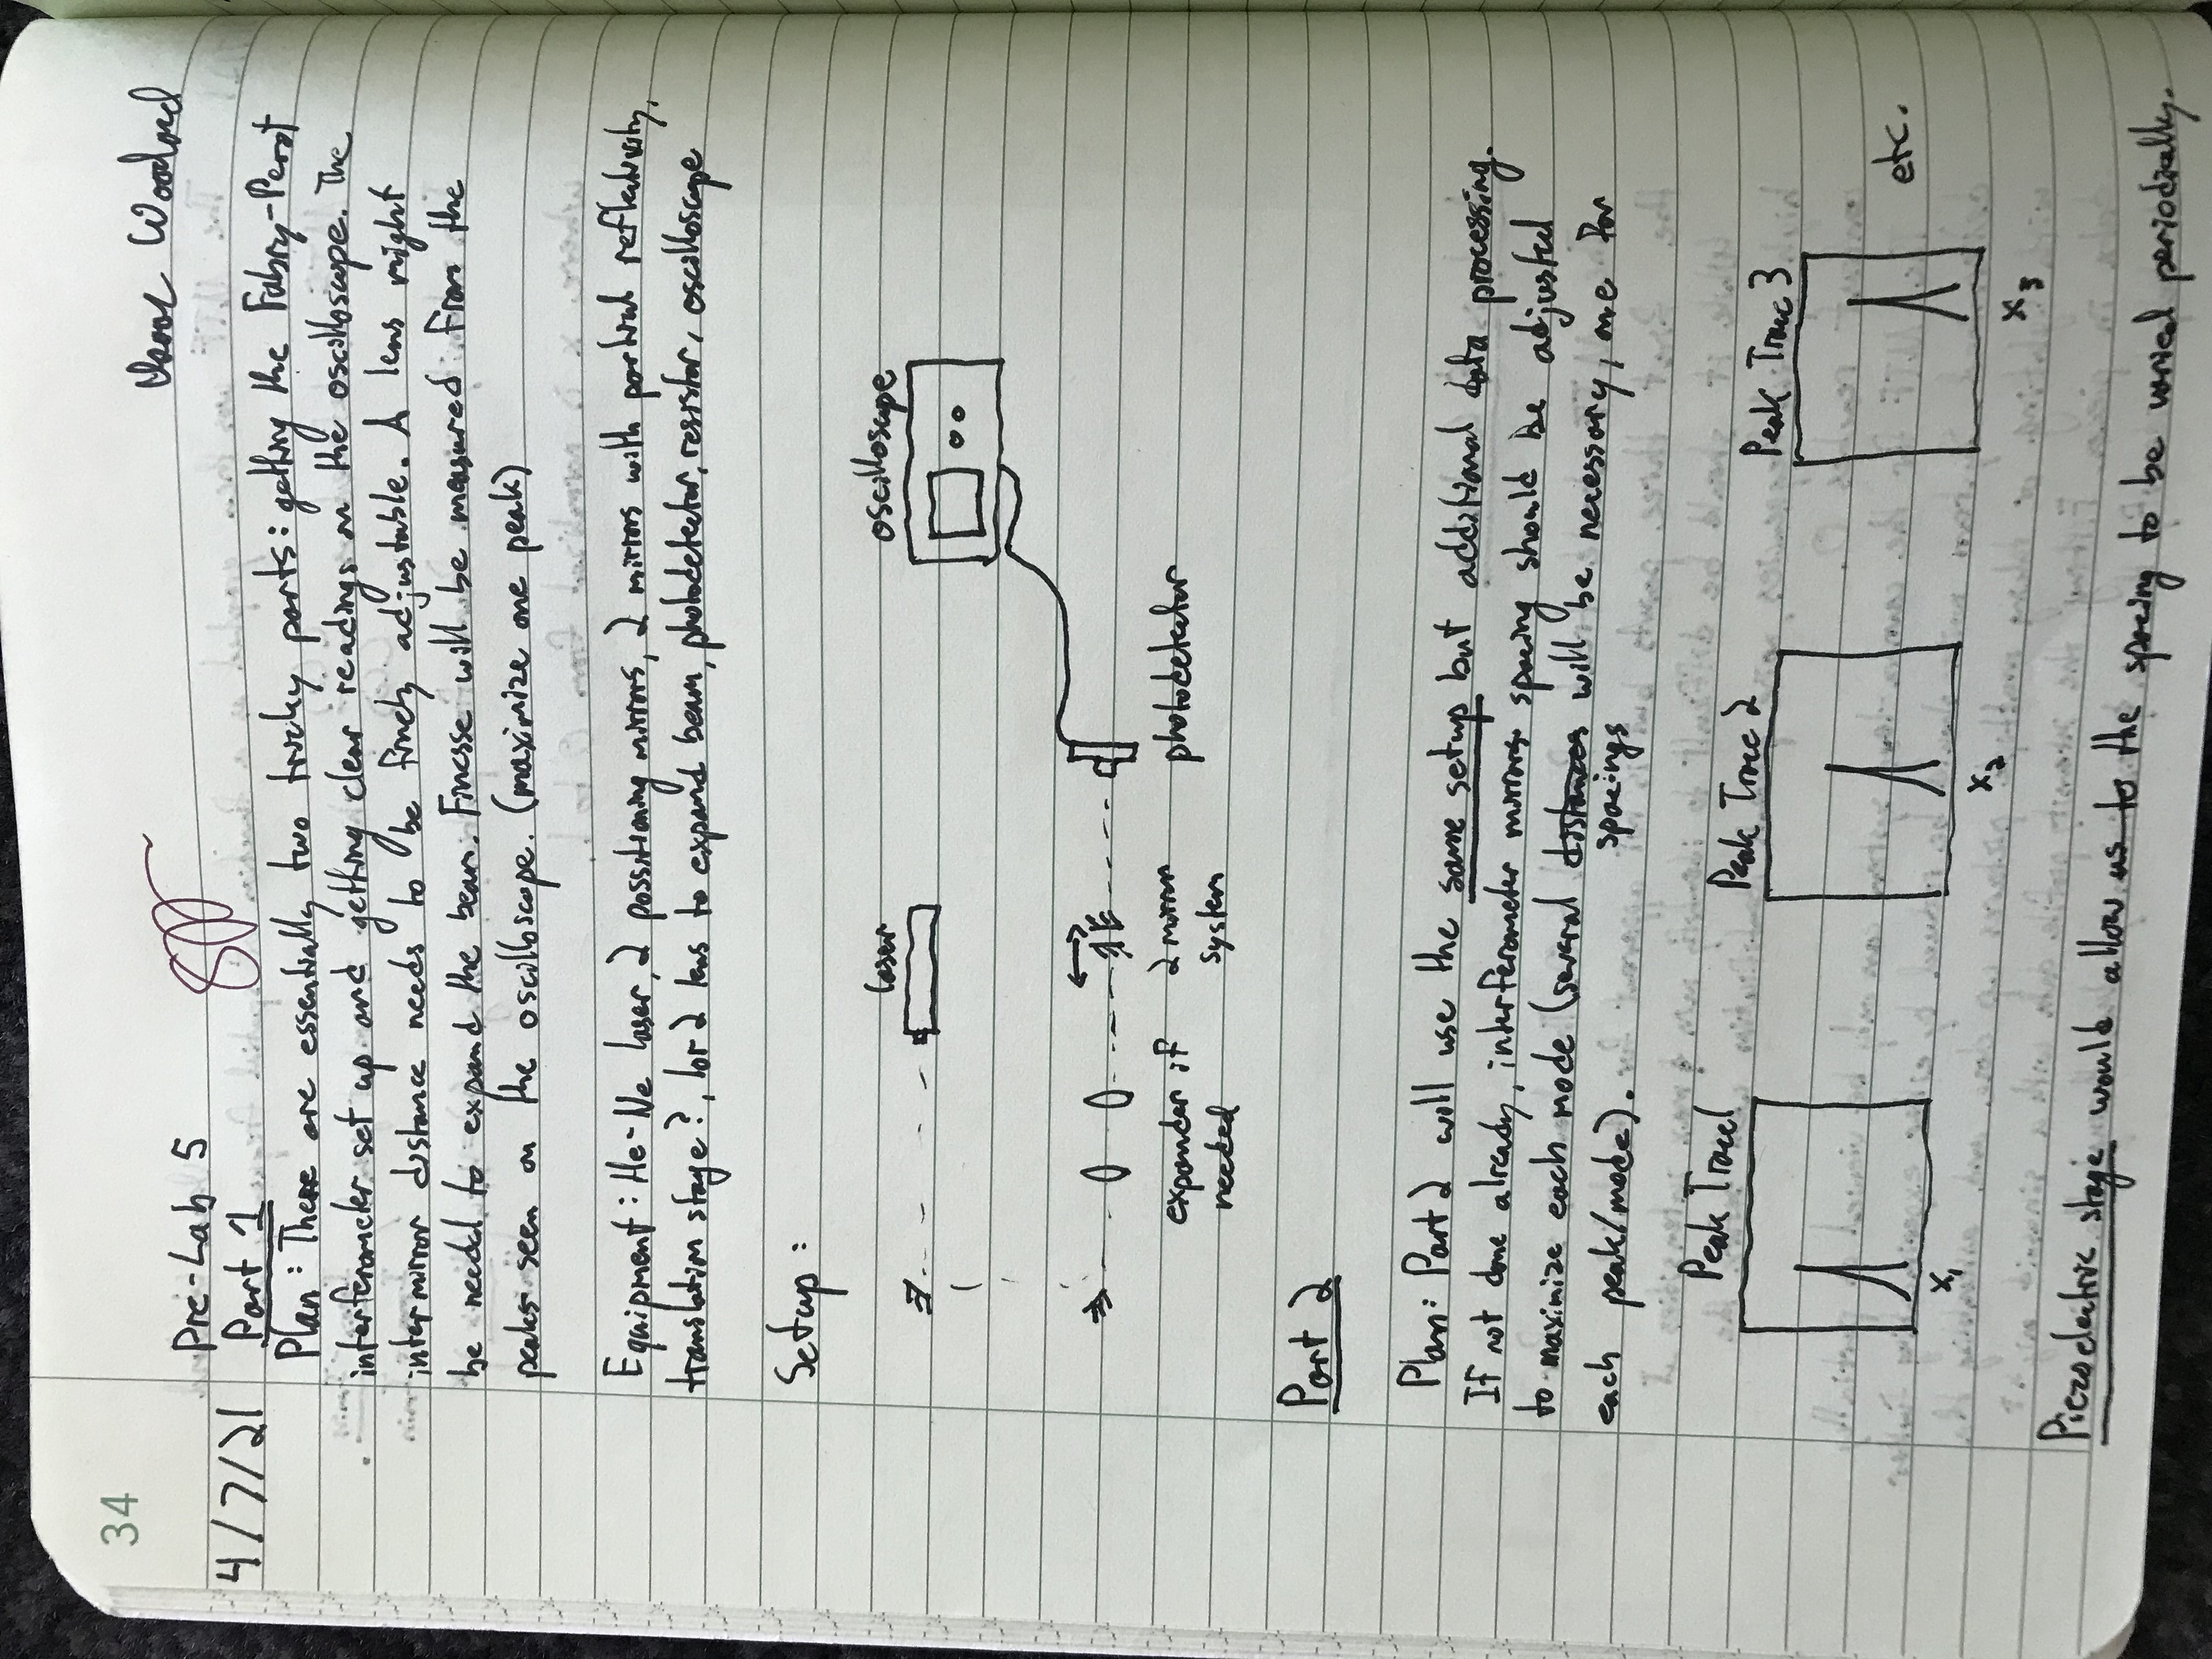 34
Woodard
Pre-Lab 5
4/7/21 Part 1
Plan: There are essentially two tricky parts: getting the Fabry-Perot
interferometer set up and getting clear readings on the oscilloscope. The
intermirror distance needs to be finely adjustable. A lens might
be needed to expand the beam. Finesse will be measured from the
peaks seen on the oscilloscope. (maximize one peak)
Equipment: He-Ne laser, 2 possitioning mirrors, 2 mirrors with partial reflectivity,
translation stage?, 1 or 2 lens to expand beam, photodetector, resistor, oscilloscope
Setup:
laser
oscilloscope
expander if
needed
2 mirror
system
photodetector
Part 2
Plan: Part 2 will use the same setup but additional data processing.
If not done already, interferometer mirrors spacing should be adjusted
to maximize each mode (several distances will be necessary, one for
spacings
each peak/mode).
Peak Trace 1
Peak Trace 2
Peak Trace 3
etc.
x₁
x₂
x₃
Piezoelectric stage would allow us to the spacing to be varied periodically.